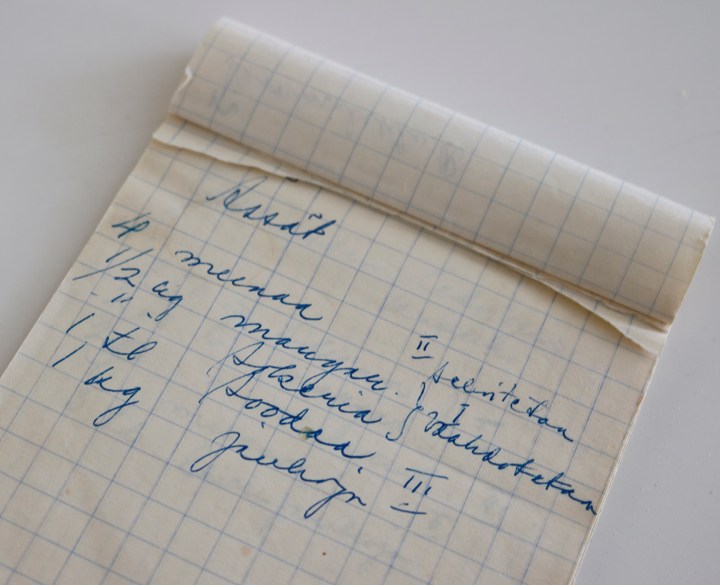 Ässät
4 munaa II selvitetään
1/2 kg margar. } I
" " Sokeria } Vaahdotetaan
1 tl Soodaa
1 kg jauhoja III